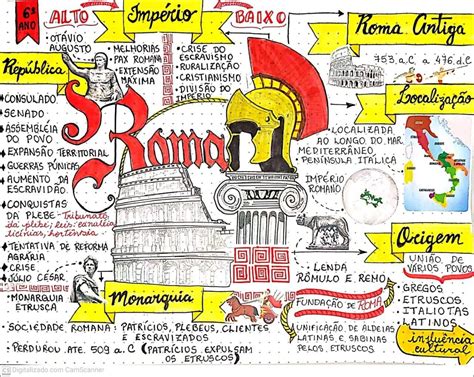 6º ANO
ALTO
Império
BAIXO
OTÁVIO
AUGUSTO
MELHORIAS
PAX ROMANA
EXTENSÃO
MÁXIMA
CRISE DO
ESCRAVISMO
RURALIZAÇÃO
CRISTIANISMO
DIVISÃO DO
IMPÉRIO
Roma Antiga
753, a.C a 476, d.C
República
CONSULADO
SENADO
ASSEMBLÉIA
DO POVO
EXPANSÃO TERRITORIAL
GUERRAS PÚNICAS
AUMENTO DA
ESCRAVIDÃO
CONQUISTAS
DA PLEBE - Tribunato
da plebe; leis: canuléia
licínias, hortensia
TENTATIVA DE REFORMA
AGRÁRIA
CRISE
JÚLIO CÉSAR
MONARQUIA
ETRUSCA
Roma
Localização
LOCALIZADA
AO LONGO DO MAR
MEDITERRÂNEO
PENÍNSULA ITÁLICA
IMPÉRIO
ROMANO
LENDA
RÔMULO E REMO
FUNDAÇÃO DE ROMA
UNIFICAÇÃO DE ALDEIAS
LATINAS E SABINAS
PELOS ETRUSCOS
Origem
UNIÃO DE
VÁRIOS POVOS
GREGOS
ETRUSCOS
ITALIOTAS
LATINOS
influência
cultural
Monarquia
SOCIEDADE ROMANA: PATRÍCIOS, PLEBEUS, CLIENTES
E ESCRAVIZADOS
PERDUROU ATÉ. 509 a.C (PATRÍCIOS EXPULSAM
OS ETRUSCOS)
Digitalizado com CamScanner